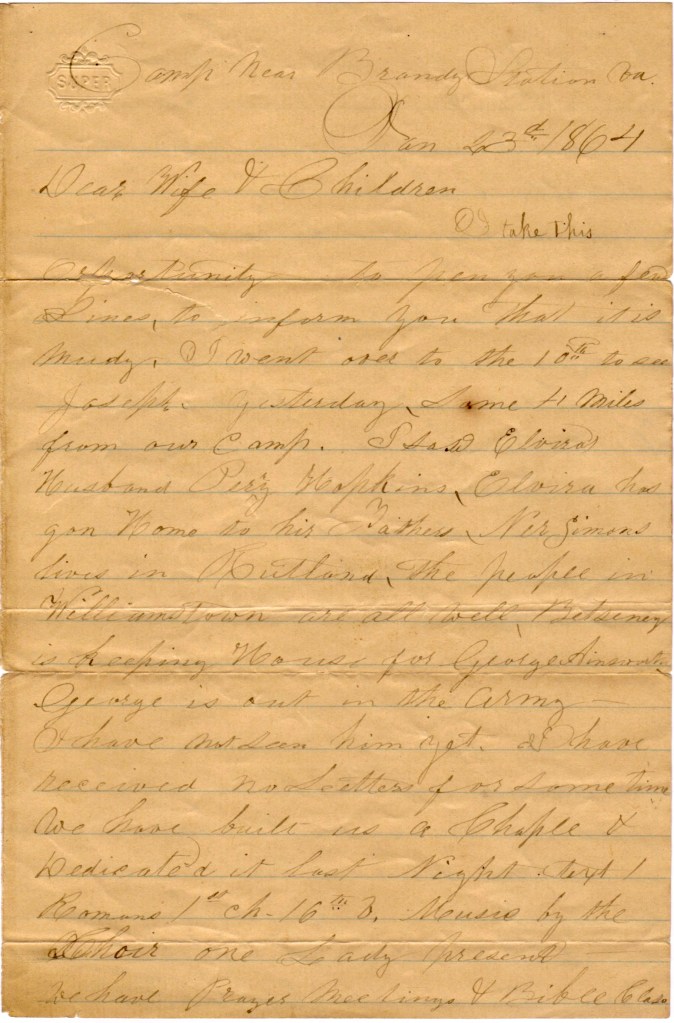 SUPER
Camp Near Brandy Station Va.
Jan 23d 1864
Dear Wife & Children
I take this
oppertunity to pen you a few
Lines, to inform you that it is
Mudy. I went over to the 10th to see
Joseph. yesterday, some 4 Miles
from our Camp. I saw Elviras
Husband Perry Hopkins, Elvira has
gon Home to his Fathers, Ner Simons
lives in Rutland, the people in
Williamstown are all well, Betseney
is keeping House for George Ainsworth,
George is out in the Army —
I have not seen him yet. I have
received no Letters for some time
We have built us a Chaple &
Dedicated it last Night text 1
Romans 1st ch - 16th v. Music by the
Choir one Lady present —
We have Prayer Meetings & Bible Class